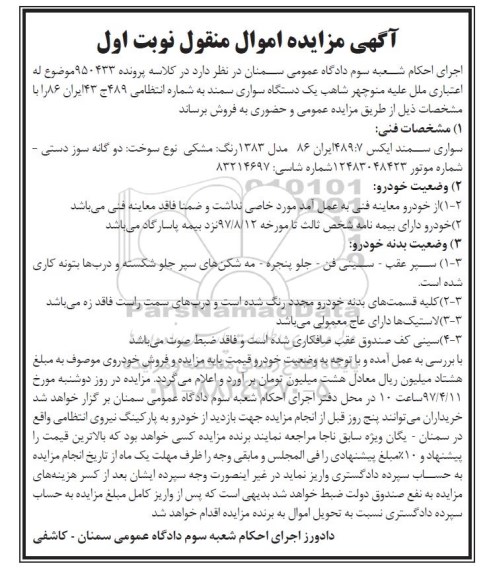 آگهی مزایده اموال منقول نوبت اول
اجرای احکام شعبه سوم دادگاه عمومی سمنان در نظر دارد در کلاسه پرونده ۹۵۰۴۳۳موضوع له
اعتباری ملل علیه منوچهر شاهب یک دستگاه سواری سمند به شماره انتظامی ۴۸۹ج ۴۳ایران ۸۶را با
مشخصات ذیل از طریق مزایده عمومی و حضوری به فروش برساند
۱) مشخصات فنی:
سواری سمند ایکس ۴۸۹:۷ایران ۸۶ مدل ۱۳۸۳رنگ: مشکی نوع سوخت: دو گانه سوز دستی –
شماره موتور ۱۲۴۸۳۰۴۸۴۲۳شماره شاسی: ۸۳۲۱۴۶۹۷
۲) وضعیت خودرو:
۱-۲)از خودرو معاینه فنی به عمل آمد مورد خاصی نداشت و ضمنا فاقد معاینه فنی می‌باشد
۲)خودرو دارای بیمه نامه شخص ثالث تا مورخه ۹۷/۸/۱۲نزد بیمه پاسارگاد می‌باشد
۳) وضعیت بدنه خودرو:
۱-۳) سپر عقب - سینی فن - جلو پنجره - مه شکن‌های سپر جلو شکسته و درب‌ها بتونه کاری
شده است.
۲-۳)کلیه قسمت‌های بدنه خودرو مجدد رنگ شده است و درب‌های سمت راست فاقد زه می‌باشد
۳-۳)لاستیک‌ها دارای عاج معمولی می‌باشد
۴-۳)سینی کف صندوق عقب صافکاری شده است و فاقد ضبط صوت می‌باشد
با بررسی به عمل آمده و با توجه به وضعیت خودرو قیمت پایه مزایده و فروش خودروی موصوف به مبلغ
هشتاد میلیون ریال معادل هشت میلیون تومان بر آورد و اعلام می‌گردد. مزایده در روز دوشنبه مورخ
۹۷/۴/۱۱ساعت ۱۰ در محل دفتر اجرای احکام شعبه سوم دادگاه عمومی سمنان بر گزار خواهد شد
خریداران می‌توانند پنج روز قبل از انجام مزایده جهت بازدید از خودرو به پارکینگ نیروی انتظامی واقع
در سمنان - یگان ویژه سابق ناجا مراجعه نمایند برنده مزایده کسی خواهد بود که بالاترین قیمت را
پیشنهاد و ۱۰٪مبلغ پیشنهادی را فی المجلس و مابقی وجه را ظرف مهلت یک ماه از تاریخ انجام مزایده
به حساب سپرده دادگستری واریز نماید در غیر اینصورت وجه سپرده ایشان بعد از کسر هزینه‌های
مزایده به نفع صندوق دولت ضبط خواهد شد بدیهی است که پس از واریز کامل مبلغ مزایده به حساب
سپرده دادگستری نسبت به تحویل اموال به برنده مزایده اقدام خواهد شد
دادورز اجرای احکام شعبه سوم دادگاه عمومی سمنان - کاشفی